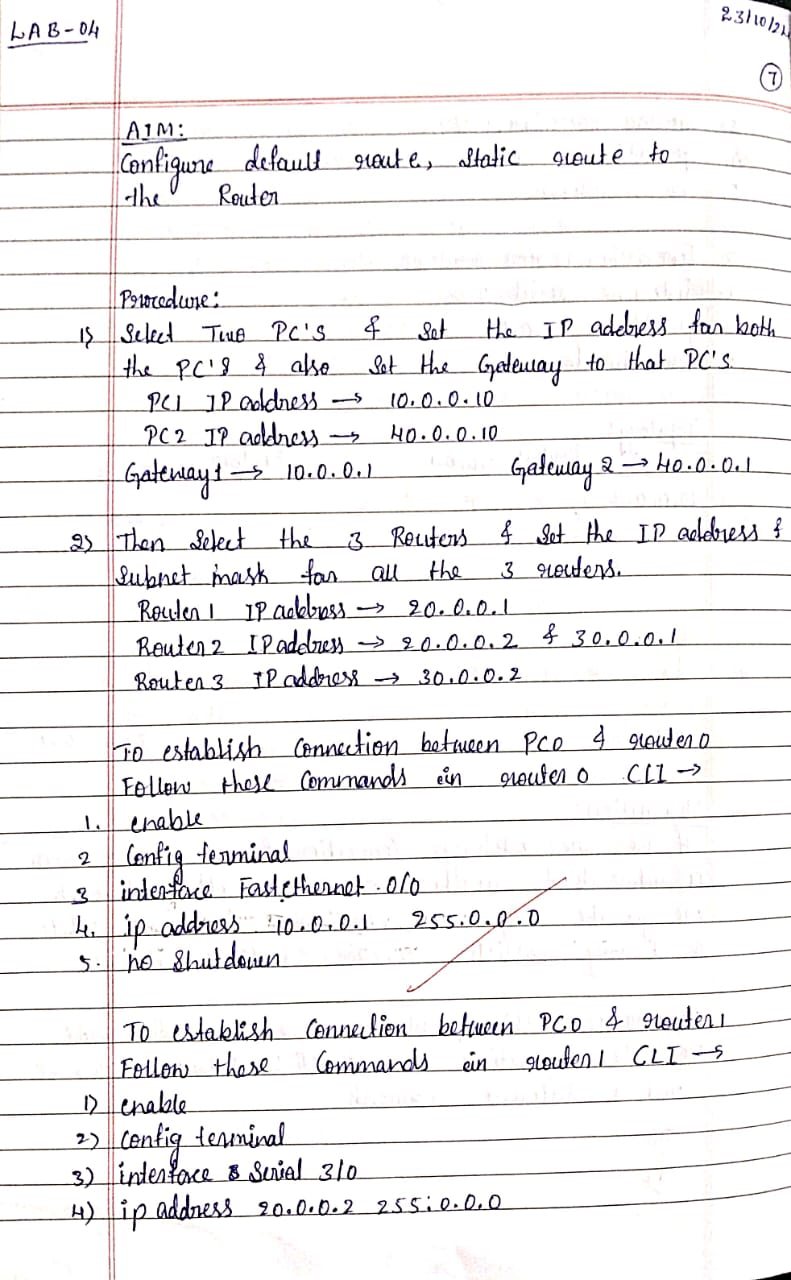 LAB-04
23/10/24
7
AIM:
Configure default route, static route to
the Router
Procedure:
1) Select Two PC'S & Set the IP address for both
the PC's & also Set the Gateway to that PC's.
PC1 IP address → 10.0.0.10
PC2 IP address → 40.0.0.10
Gateway1 → 10.0.0.1 Gateway 2 → 40.0.0.1
2) Then Select the 3 Routers & Set the IP address &
Subnet mask for all the 3 routers.
Router 1 IP address → 20.0.0.1
Router 2 IP address → 20.0.0.2 & 30.0.0.1
Router 3 IP address → 30.0.0.2
To establish Connection between PC0 & router 0
Follow these Commands in router 0 CLI →
1. enable
2 Config terminal
3 interface Fastethernet 0/0
4. ip address 10.0.0.1 255.0.0.0
5. no Shutdown
To establish Connection between PC0 & router 1
Follow these Commands in router 1 CLI →
1) enable
2) Config terminal
3) interface Serial 3/0
4) ip address 20.0.0.2 255.0.0.0